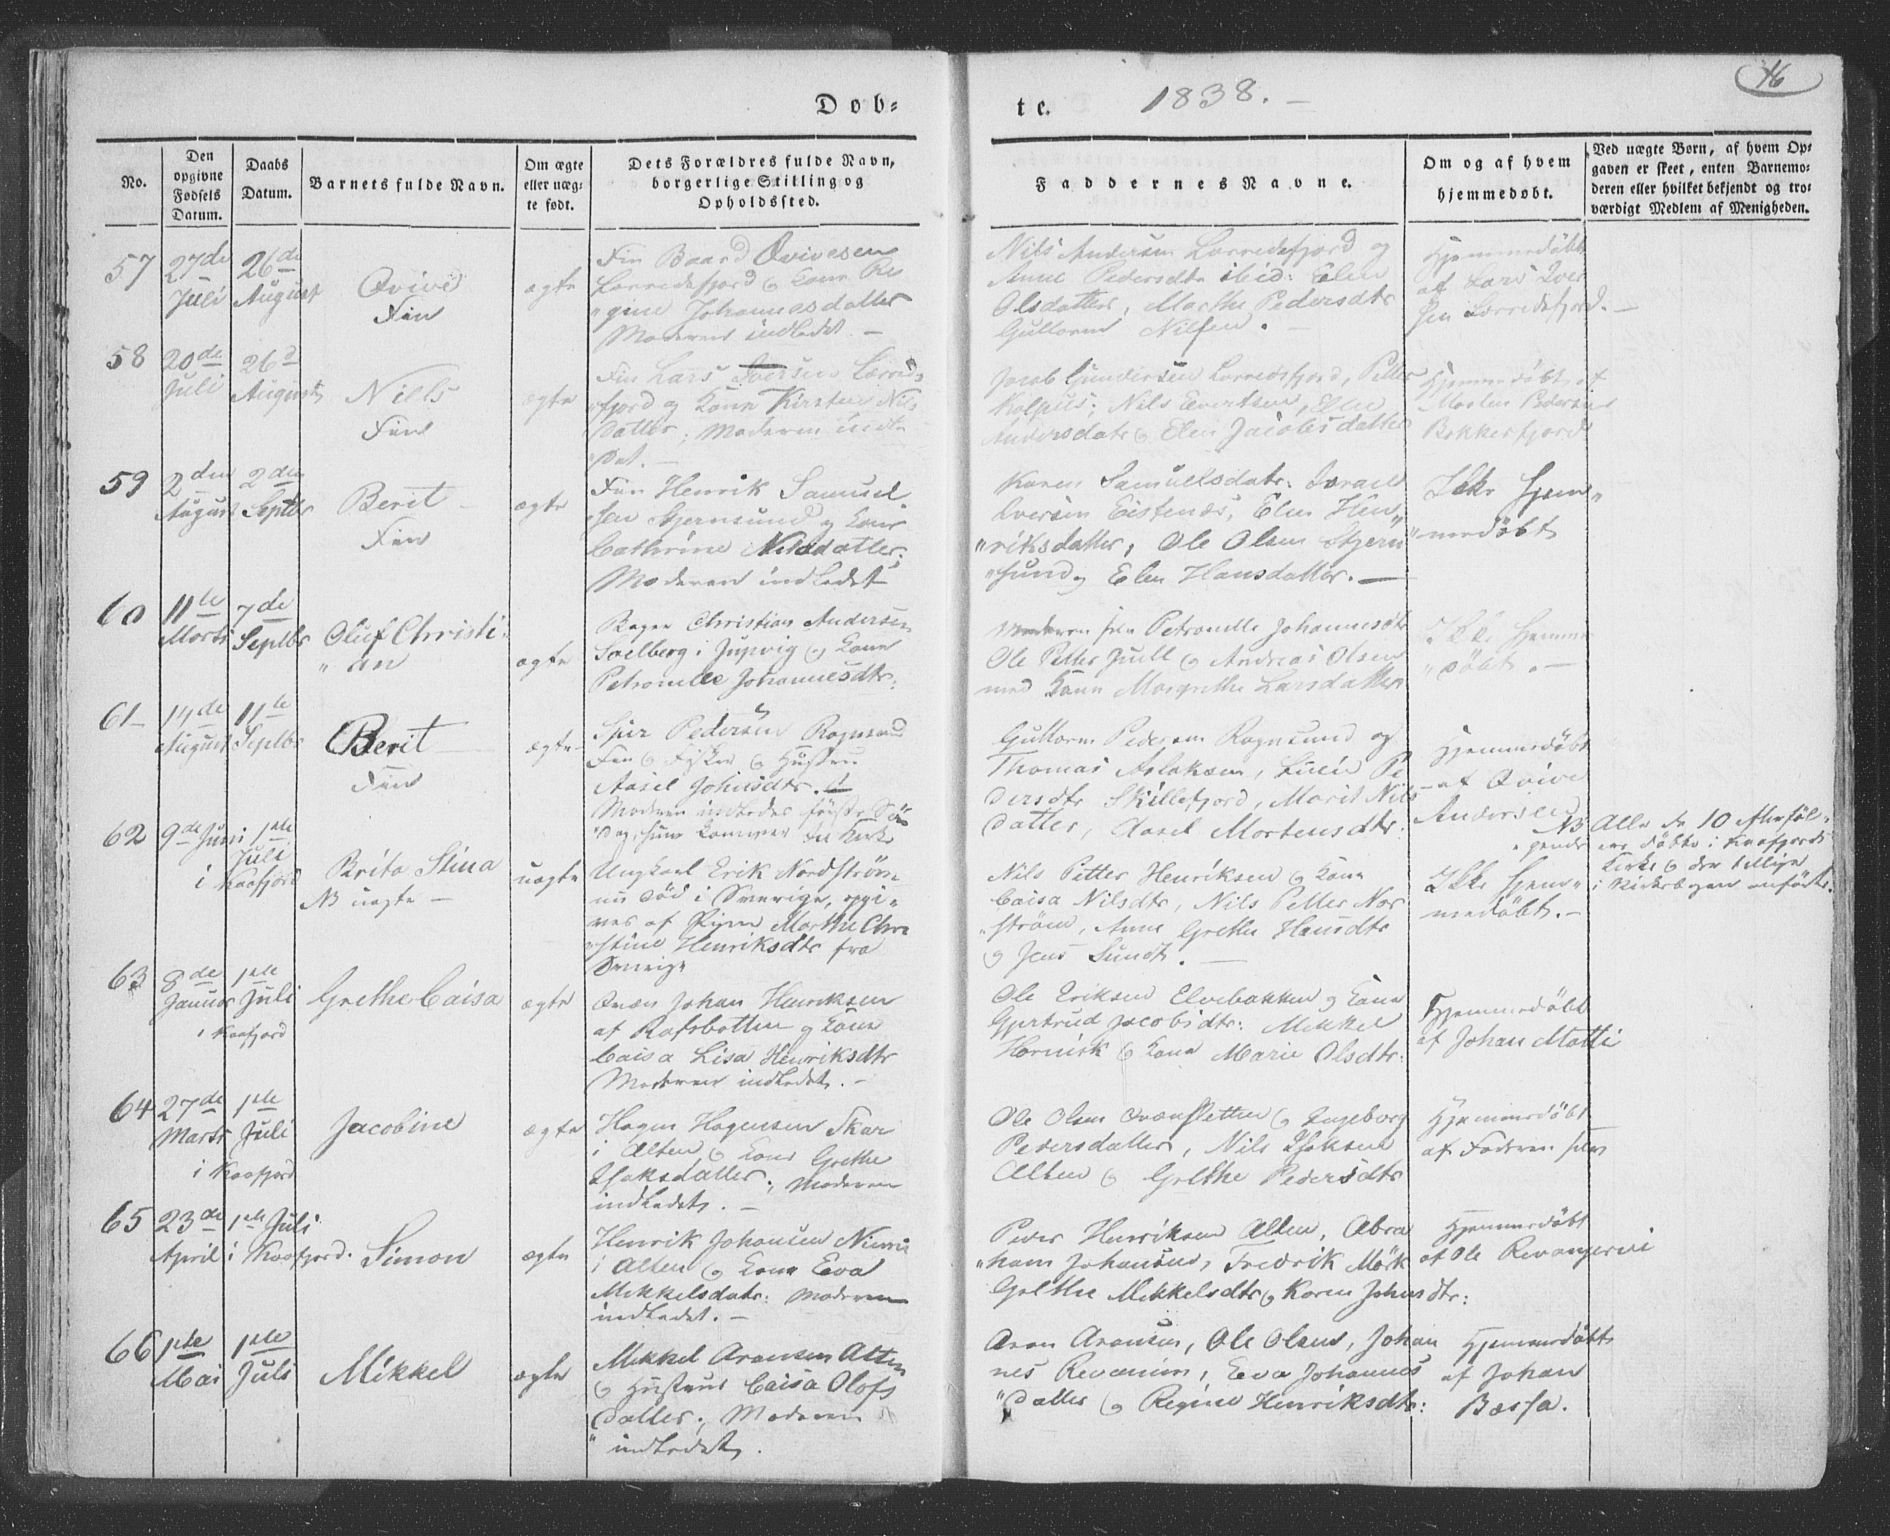 Dob=
te.
1838. –
46
No.
Den opgivne Fødsels Datum.
Daabs Datum.
Barnets fulde Navn.
Om ægte eller uæg- te født.
Dets Forældres fulde Navn,
borgerlige Stilling og
Opholdssted.
Faddernes Navne.
Om og af hvem
hjemmedøbt.
Ved uægte Børn, af hvem Op-
gaven er skeet, enten Barnemo-
deren eller hvilket bekjendt og tro-
værdigt Medlem af Menigheden.
57
27de Juli
26de August
Qvive
Fin
ægte
Fin Baard Qvivesen
Lerredsfjord og Kone Re
gine Johannesdatter
Moderen indledet. –
Nils Andersen Lerredsfjord og
Anne Pedersdtr ibid: Elen
Olsdatter, Marthe Pedersdtr
Guttorm Nilsen. –
Hjemmedøbt
af Lars Iver
sen Lerredsfjord. –
58
20de Juli
26d August
Niels
Fin
ægte
Fin Lars Iversen Lerreds
fjord og Kone Kirsten Nils
datter; Moderen indle
det. –
Jacob Gundersen Lerredsfjord, Petter
Nils Evertsen, Elen
Andersdatr og Elen Jacobsdatter
Hjemmedøbt af
Morten Pedersen
Bekkerfjord
59
2den August
2den Septbr
Berit
Fin
ægte
Fin Henrik Samuel
sen Stjernsund og Kone
Cathrine Nilsdatter.
Moderen indledet
Karen Samuelsdatr. Israel
Iversen Eistenæs, Elen Hen
riksdatter, Ole Olsen Stjern
sund og Elen Hansdatter. –
Ikke Hjem
medøbt
60
11te Marts
7de Septbr
Oluf Christi
an
ægte
Christian Andersen
Soelberg i Jupvig og Kone
Petronille Johannesdtr.
Moderen selv Petronille Johannesdtr
Ole Petter Juell og Andreas Olsen
med Kone Margrethe Larsdatter
Ikke Hjemme
døbt. –
61
14de August
11te Septbr
Berit
Fin
ægte
Pedersen Rognsund
Fin og Fisker og Hustru
Aasel Johnsdtr.
Moderen indledes første Søn
dag, hun kommer til Kirke
Guttorm Pedersen Rognsund og
Thomas Aslaksen, Pe
dersdtr Skillefjord, Marit Nils
datter, Aasel Mortensdtr.
Hjemmedøbt
af Qvive
Andersen
62
9de Juni
1ste Juli
i Kaafjord
Brita Stina
NB uægte –
uægte
Ungkarl Erik Nordstrøm
nu død i Sverige, opgi
ves af Pigen Marthe Chri
stine Henriksdtr fra
Sverige
Nils Petter Henriksen og Kone
Caisa Nilsdtr, Nils Petter Nor
strøm, Anne Grethe Hansdtr
og Jens Sundt. –
Ikke Hjem
medøbt. –
NB Alle de 10 efterføl
gende ere døbte i Kaafjords
Kirke og der tillige
i Kirkebogen anførte.
63
8de Januar
1ste Juli
i Kaafjord
Grethe Caisa
ægte
Qvæn Johan Henriksen
af Rafsbotten og Kone
Caisa Lisa Henriksdtr
Moderen indledet. –
Ole Eriksen Elvebakken og Kone
Gjertrud Jacobsdtr: Mikkel
Hornisk og Kone Marie Olsdtr.
Hjemmedøbt
af Johan Matti
64
27de Marts
1ste Juli
i Kaafjord
Jacobine
ægte
Hagen Hagensen Skar
i Alten og Kone Grethe
Isaksdatter, Moderen
indledet. –
Ole Olsen Qvænsletten og Ingeborg
Pedersdatter, Nils Isaksen
Alten og Grethe Pedersdtr
Hjemmedøbt
af Faderen selv
65
23de April
1ste Juli
i Kaafjord.
Simon
ægte
Henrik Johansen Niemi
i Alten og Kone Eva
Mikkelsdatr. Moderen
indledet. –
Peder Henriksen Alten, Abra
ham Johansen, Fredrik Mørk
Grethe Mikkelsdtr og Karen Johnsdtr:
Hjemmedøbt
af Ole
66
1ste Mai
1ste Juli
Mikkel
ægte
Mikkel Aronsen Alten
og Hustrue Caisa Olofs
datter; Moderen
indledet.
Aron Aronsen, Ole Olsen, Johan
nes Eva Johannes
datter og Regine Henriksdtr:
Hjemmedøbt
af Johan
Bassa.